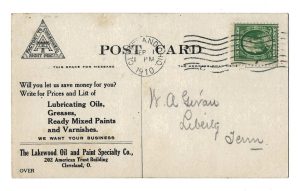 POST CARD
CLEVELAND, O.
SEP
PM
1910
THIS SPACE FOR MESSAGE
Will you let us save money for you?
Write for Prices and List of
Lubricating Oils,
Greases,
Ready Mixed Paints
and Varnishes.
WE WANT YOUR BUSINESS
The Lakewood Oil and Paint Specialty Co.,
202 American Trust Building
Cleveland, O.
OVER
W A Givan
Liberty
Tenn